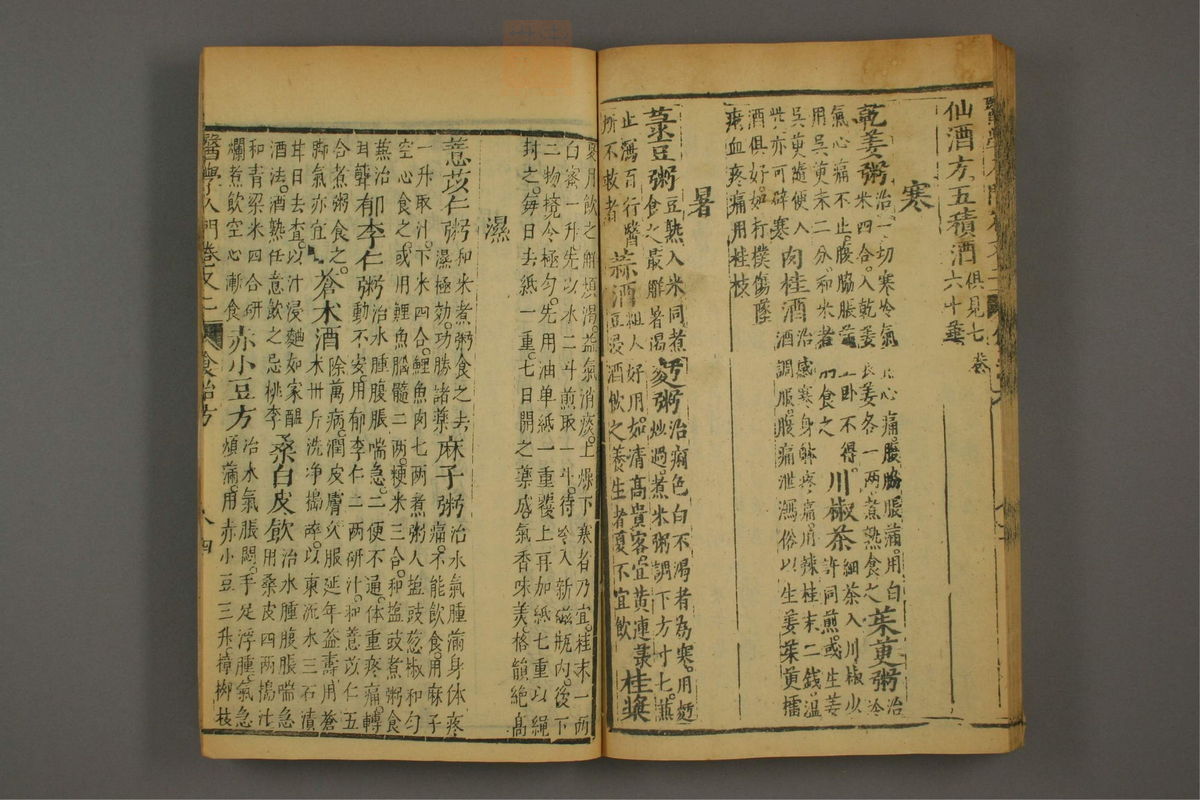 仙酒方五積酒俱見七卷
六十葉
寒
乾姜粥治一切寒冷氣心痛腹脇脹滿用白
米四合入乾姜良姜各一兩煮熟食之茱萸粥治冷
氣心痛不止腹脇脹滿坐卧不得
用吳萸末二分和米煮粥食之川椒茶細茶入川椒少
許同煎或生姜
吳萸隨便入
些亦可辟寒肉桂酒治感寒身體疼痛用辣桂末二錢溫
酒調服腹痛泄瀉俗以生姜茱萸擂
酒俱好如打撲傷墜
瘀血疼痛用桂枝
暑
菉豆粥豆熟入米同煮
食之最解暑渴麥粥治痢色白不渴者為寒用麪
炒過煮米粥調下方寸七兼
止瀉百行醫
所不救者蒜酒粗人好用如清高貴客宜黃連菉
豆浸酒飲之養生者夏不宜飲桂漿
夏月飲之解煩渴益氣消痰上燥下寒者乃宜桂末一兩
白蜜一升先以水二斗煎取一斗待冷入新磁瓶內後下
二物攪令極勻先用油单紙一重覆上再加紙七重以繩
封之每日去紙一重七日開之藥成氣香味美格韻絕高
濕
薏苡仁粥和米煮粥食之去
濕極効功勝諸藥麻子粥治水氣腫滿身体疼
痛不能飲食用麻子
一升取汁下米四合鯉魚肉七兩煮粥入塩豉葱椒和勻
空心食之或用鯉魚腦髓二兩粳米三合和塩豉煮粥食
蕪治
耳聾郁李仁粥治水腫腹脹喘急二便不通体重疼痛轉
動不安用郁李仁二兩研汁和薏苡仁五
合煮粥食之
脚氣亦宜蒼术酒除萬病潤皮膚久服延年益壽用蒼
术卅斤洗净搗碎以東流水三石漬
廿日去查以汁浸麯如家醖
酒法酒熟任意飲之忌桃李桑白皮飲治水腫腹脹喘急
用桑皮四兩搗汁
和青梁米四合研
爛煮飲空心漸食赤小豆方治水氣脹悶手足浮腫氣急
煩滿用赤小豆三升樟柳枝
醫學入門卷之二 食治方 八四